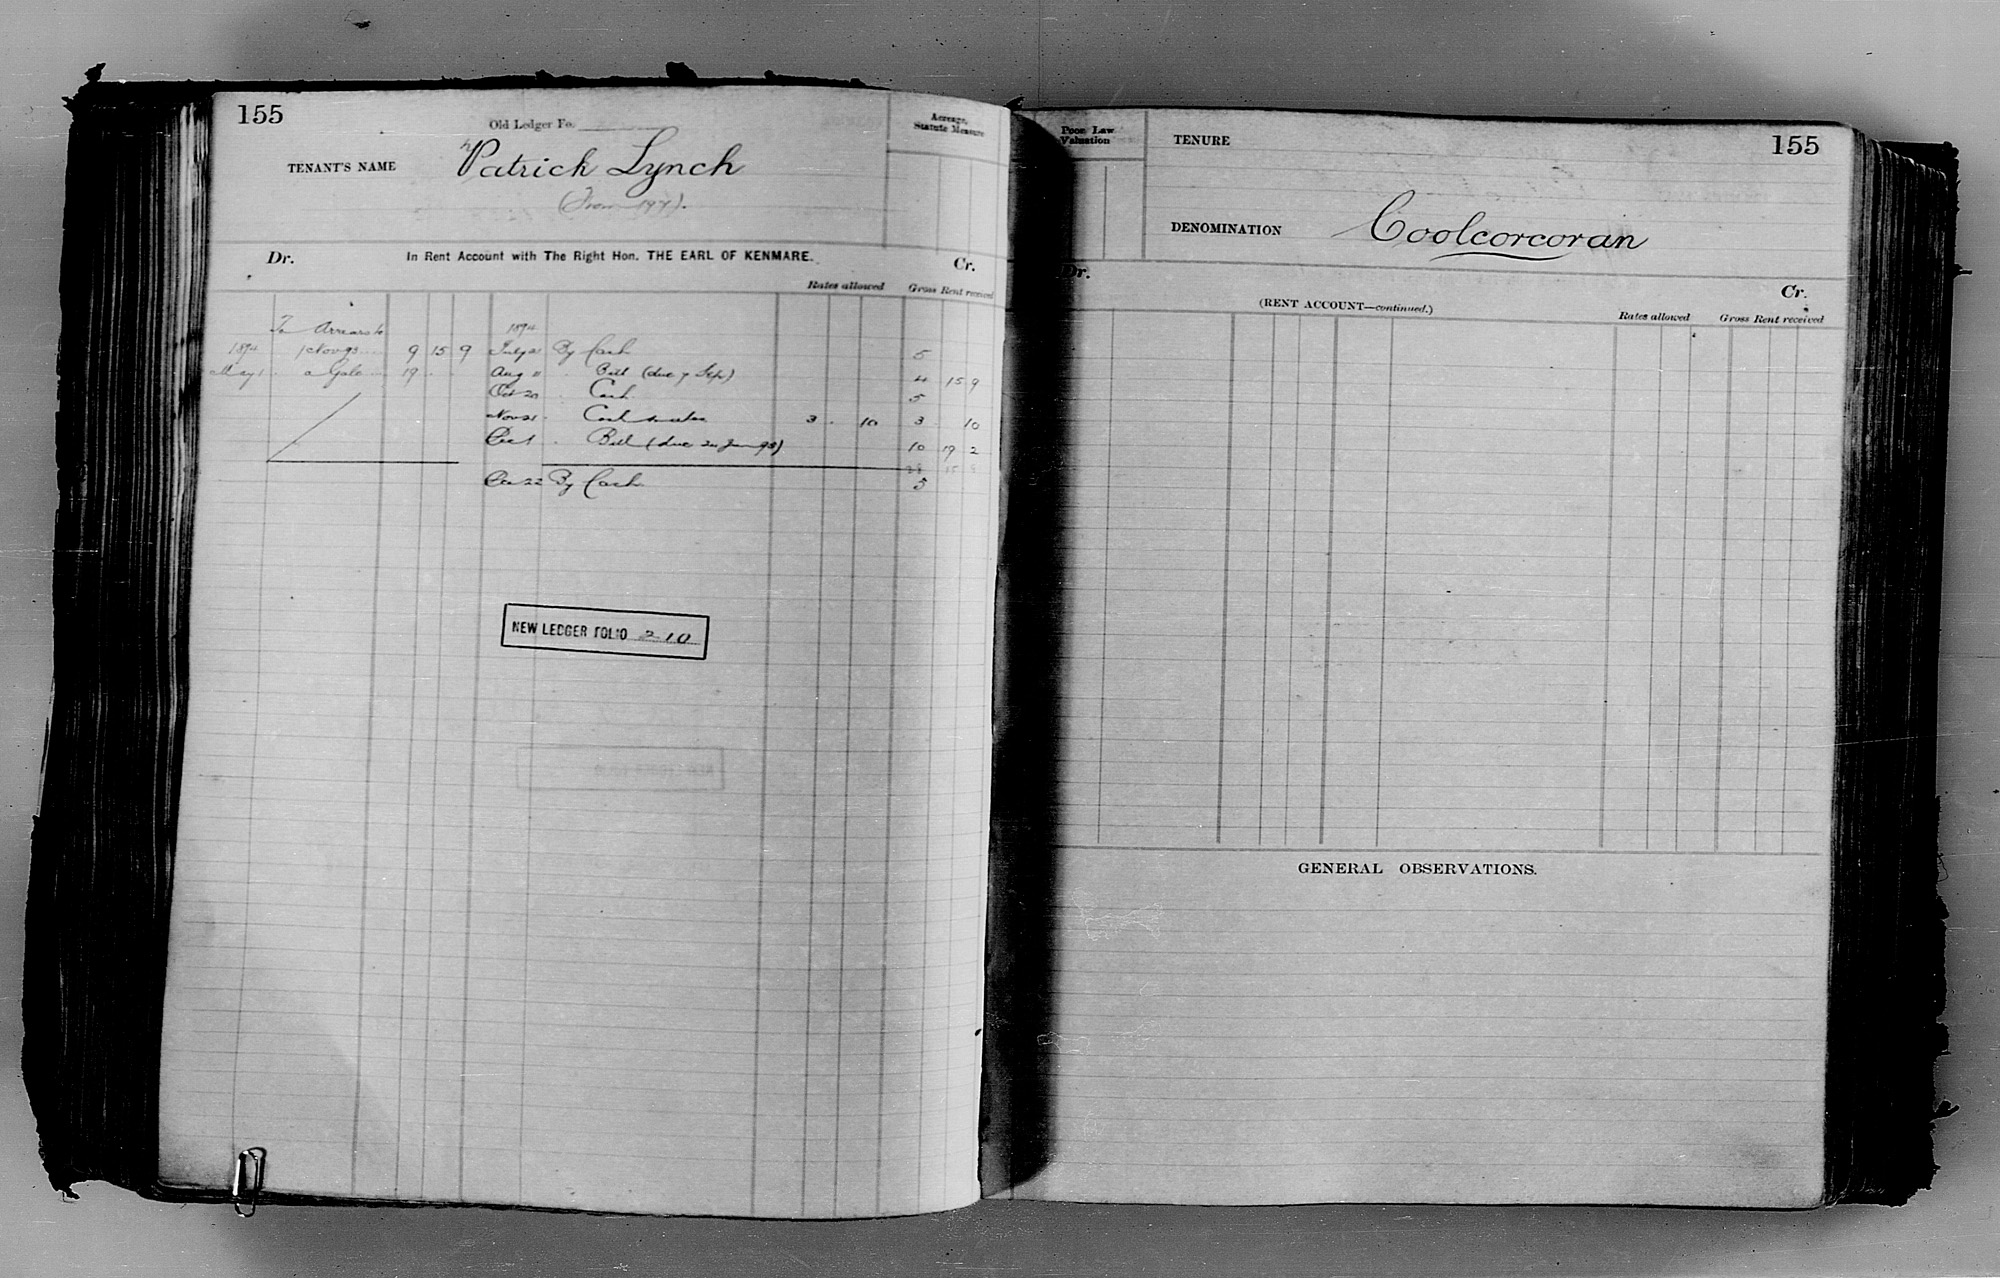 155
Old Ledger Fo.
Acreage, Statute Measure
TENANT'S NAME Patrick Lynch
(From 147).
Dr. In Rent Account with The Right Hon. THE EARL OF KENMARE. Cr.
Rates allowed Gross Rent received
To Arrears to 1894
1894 1 Nov 93 9 15 9 July 21 By Cash 5
May 1 a Gale 19 Aug 11 Bill (due 7 Sep) 4 15 9
Oct 20 Cash 5
Nov 21 Cash 3 . 10 3 . 10
Dec 1 Bill (due 24 Jan 95) 10 19 2
28 15 9
Dec 22 By Cash 5
NEW LEDGER FOLIO 210
Poor Law Valuation
TENURE
155
DENOMINATION Coolcorcoran
Dr. Cr.
(RENT ACCOUNT—continued.)
Rates allowed Gross Rent received
GENERAL OBSERVATIONS.